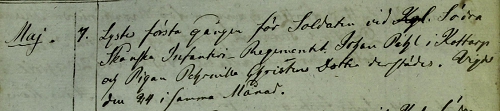 Maj. 7. Lyste första gången för Soldaten vid Kgl. Södra
Skånska Infanteri-Regementet Johan Pihl i Kottarp
och Pigan Petronella Christens Dotter derstädes. Vigde
den 24 i samma Månad.